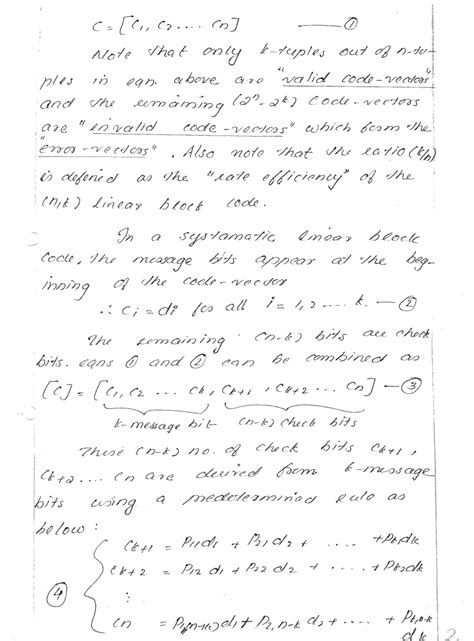 C = [C1, C2 .... Cn] — ①
Note that only k-tuples out of n-tu-
ples in eqn. above are "valid code-vectors"
and the remaining (2^n - 2^k) code-vectors
are "invalid code-vectors" which form the
"error-vectors". Also note that the ratio (k/n)
is defined as the "rate efficiency" of the
(n,k) linear block code.
In a systamatic linear block
code, the message bits appear at the beg-
inning of the code-vector
∴ Ci = di for all i = 1, 2 ..... k. — ②
The remaining (n-k) bits are check
bits. eqns ① and ② can be combined as
[C] = [C1, C2 ... Ck, Ck+1, Ck+2 ... Cn] — ③
k-message bit (n-k) check bits
These (n-k) no. of check bits Ck+1,
Ck+2 .... Cn are derived from k-message
bits using a predetermined rule as
below :
Ck+1 = P11d1 + P21d2 + .... + Pk1dk
Ck+2 = P12d1 + P22d2 + .... + Pk2dk
④ ⋮
Cn = P1,(n-k)d1 + P2,n-k d2 + .... + Pk,n-k
dk